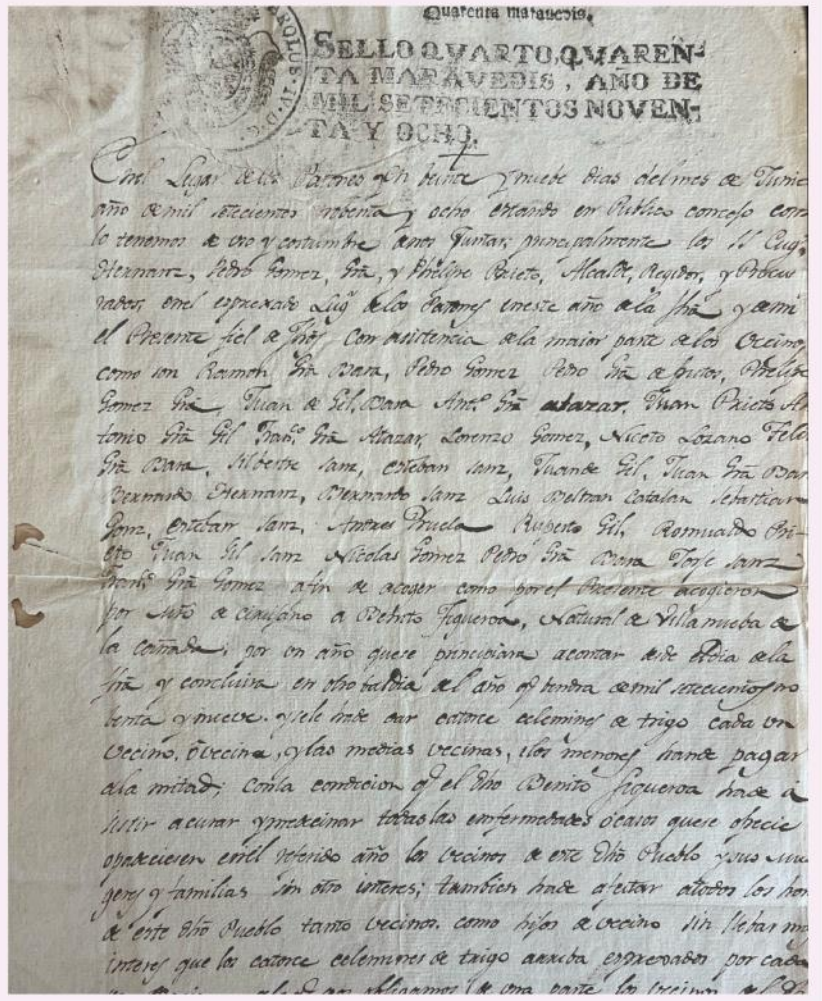 Quarenta maravedis.
CAROLUS·IV·D·G
SELLO QVARTO, QVAREN-
TA MARAVEDIS, AÑO DE
MIL SETECIENTOS NOVEN-
TA Y OCHO.
Enel Lugar de los Patones en beinte y nuebe dias del mes de Junio
año de mil setecientos nobenta y ocho estando en Publico concejo como
lo tenemos de uso y costumbre anos Juntar, principalmente los SS Eug.º
Hernanz, Pedro Gomez, Grã, y Phelipe Prieto, Alcalde, Regidor, y Procu
rador, enel espresado Lug.r delos Patones eneste año dela fhã y demi
el Presente fiel de fhõs con asistencia dela maior parte delos Vecinos,
como son Ramon Grã Bara, Pedro Gomez Pedro Grã de Phelipe
Gomez Grã, Juan de Gil, Bara Ant.º Grã atazar, Juan Prieto An
tonio Grã Gil Fran.co Grã Atazar, Lorenzo Gomez, Niceto Lozano
Grã Bara, Silbestre Sanz, esteban Sanz, Juan de Gil, Juan Grã Bara
Bernardo Hernanz, Bernardo Sanz Luis Beltran Catalan Sebastian
Gonz, esteban Sanz, Andres Ruperto Gil, Romualdo Pri-
eto Juan Gil Sanz Nicolas Gomez Pedro Grã Bara Jose Sanz
Fran.co Grã Gomez afin de acoger como por el Presente acogieron
por de cirujano a Benito Figueroa, Natural de Villanueba de
la cañada; por un año quese principiara acontar desde el dia dela
fhã y concluira en otro tal dia del año q.e bendra de mil setecientos no
benta y nueve. y sele hade dar catorce celemines de trigo cada un
Vecino, ö vecina, y las medias vecinas, ilos menores hande pagar
ala mitad; conla condicion q.e el dhõ Benito Figueroa hade a
sistir a curar y medicinar todas las enfermedades ó casos quese ofrecie
opadeciesen enel referido año los vecinos de este dhõ Pueblo y sus mu
geres y familias sin otro interes; tambien hade afeitar atodos los hom
de este dhõ Pueblo tanto vecinos, como hijos de vecino sin llebar mas
interes que los catorce celemines de trigo arriba espresados por cada
obligamos de una parte los vecinos